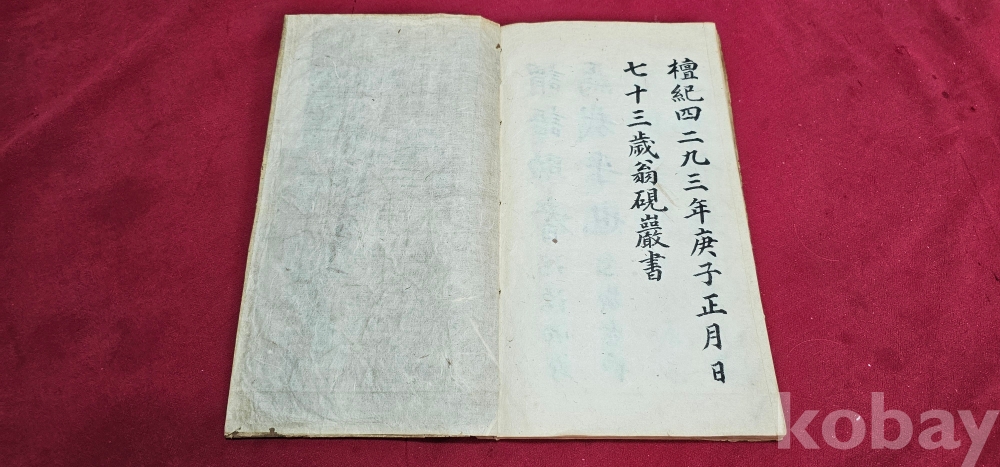 檀紀四二九三年庚子正月 日
七十三歲翁硯巖書
kobay